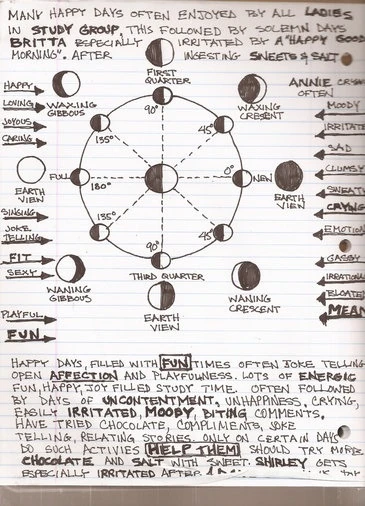 MANY HAPPY DAYS OFTEN ENJOYED BY ALL LADIES
IN STUDY GROUP, THIS FOLLOWED BY SOLEMN DAYS
BRITTA ESPECIALLY IRRITATED BY A "HAPPY GOOD
MORNING". AFTER INGESTING SWEETS & SALT
FIRST
QUARTER
ANNIE
OFTEN
HAPPY
LOVING
JOYOUS
CARING
WAXING
GIBBOUS
WAXING
CRESENT
MOODY
IRRITATE
SAD
CLUMSY
SWEATY
CRYING
EMOTION
GASSY
IRRATIONAL
BLOATED
MEAN
90°
135°
45°
0°
FULL
180°
NEW
EARTH
VIEW
EARTH
VIEW
135°
45°
90°
SINGING
JOKE
TELLING
FIT
SEXY
PLAYFUL
FUN
WANING
GIBBOUS
THIRD QUARTER
WANING
CRESCENT
EARTH
VIEW
HAPPY DAYS, FILLED WITH FUN TIMES OFTEN JOKE TELLING
OPEN AFFECTION AND PLAYFULNESS. LOTS OF ENERGIC
FUN, HAPPY, JOY FILLED STUDY TIME. OFTEN FOLLOWED
BY DAYS OF UNCONTENTMENT, UNHAPPINESS, CRYING,
EASILY IRRITATED, MOODY, BITING COMMENTS.
HAVE TRIED CHOCOLATE, COMPLIMENTS, JOKE
TELLING, RELATING STORIES. ONLY ON CERTAIN DAYS
DO SUCH ACTIVIES HELP THEM SHOULD TRY MORE
CHOCOLATE AND SALT WITH SWEET. SHIRLEY GETS
ESPECIALLY IRRITATED AFTER